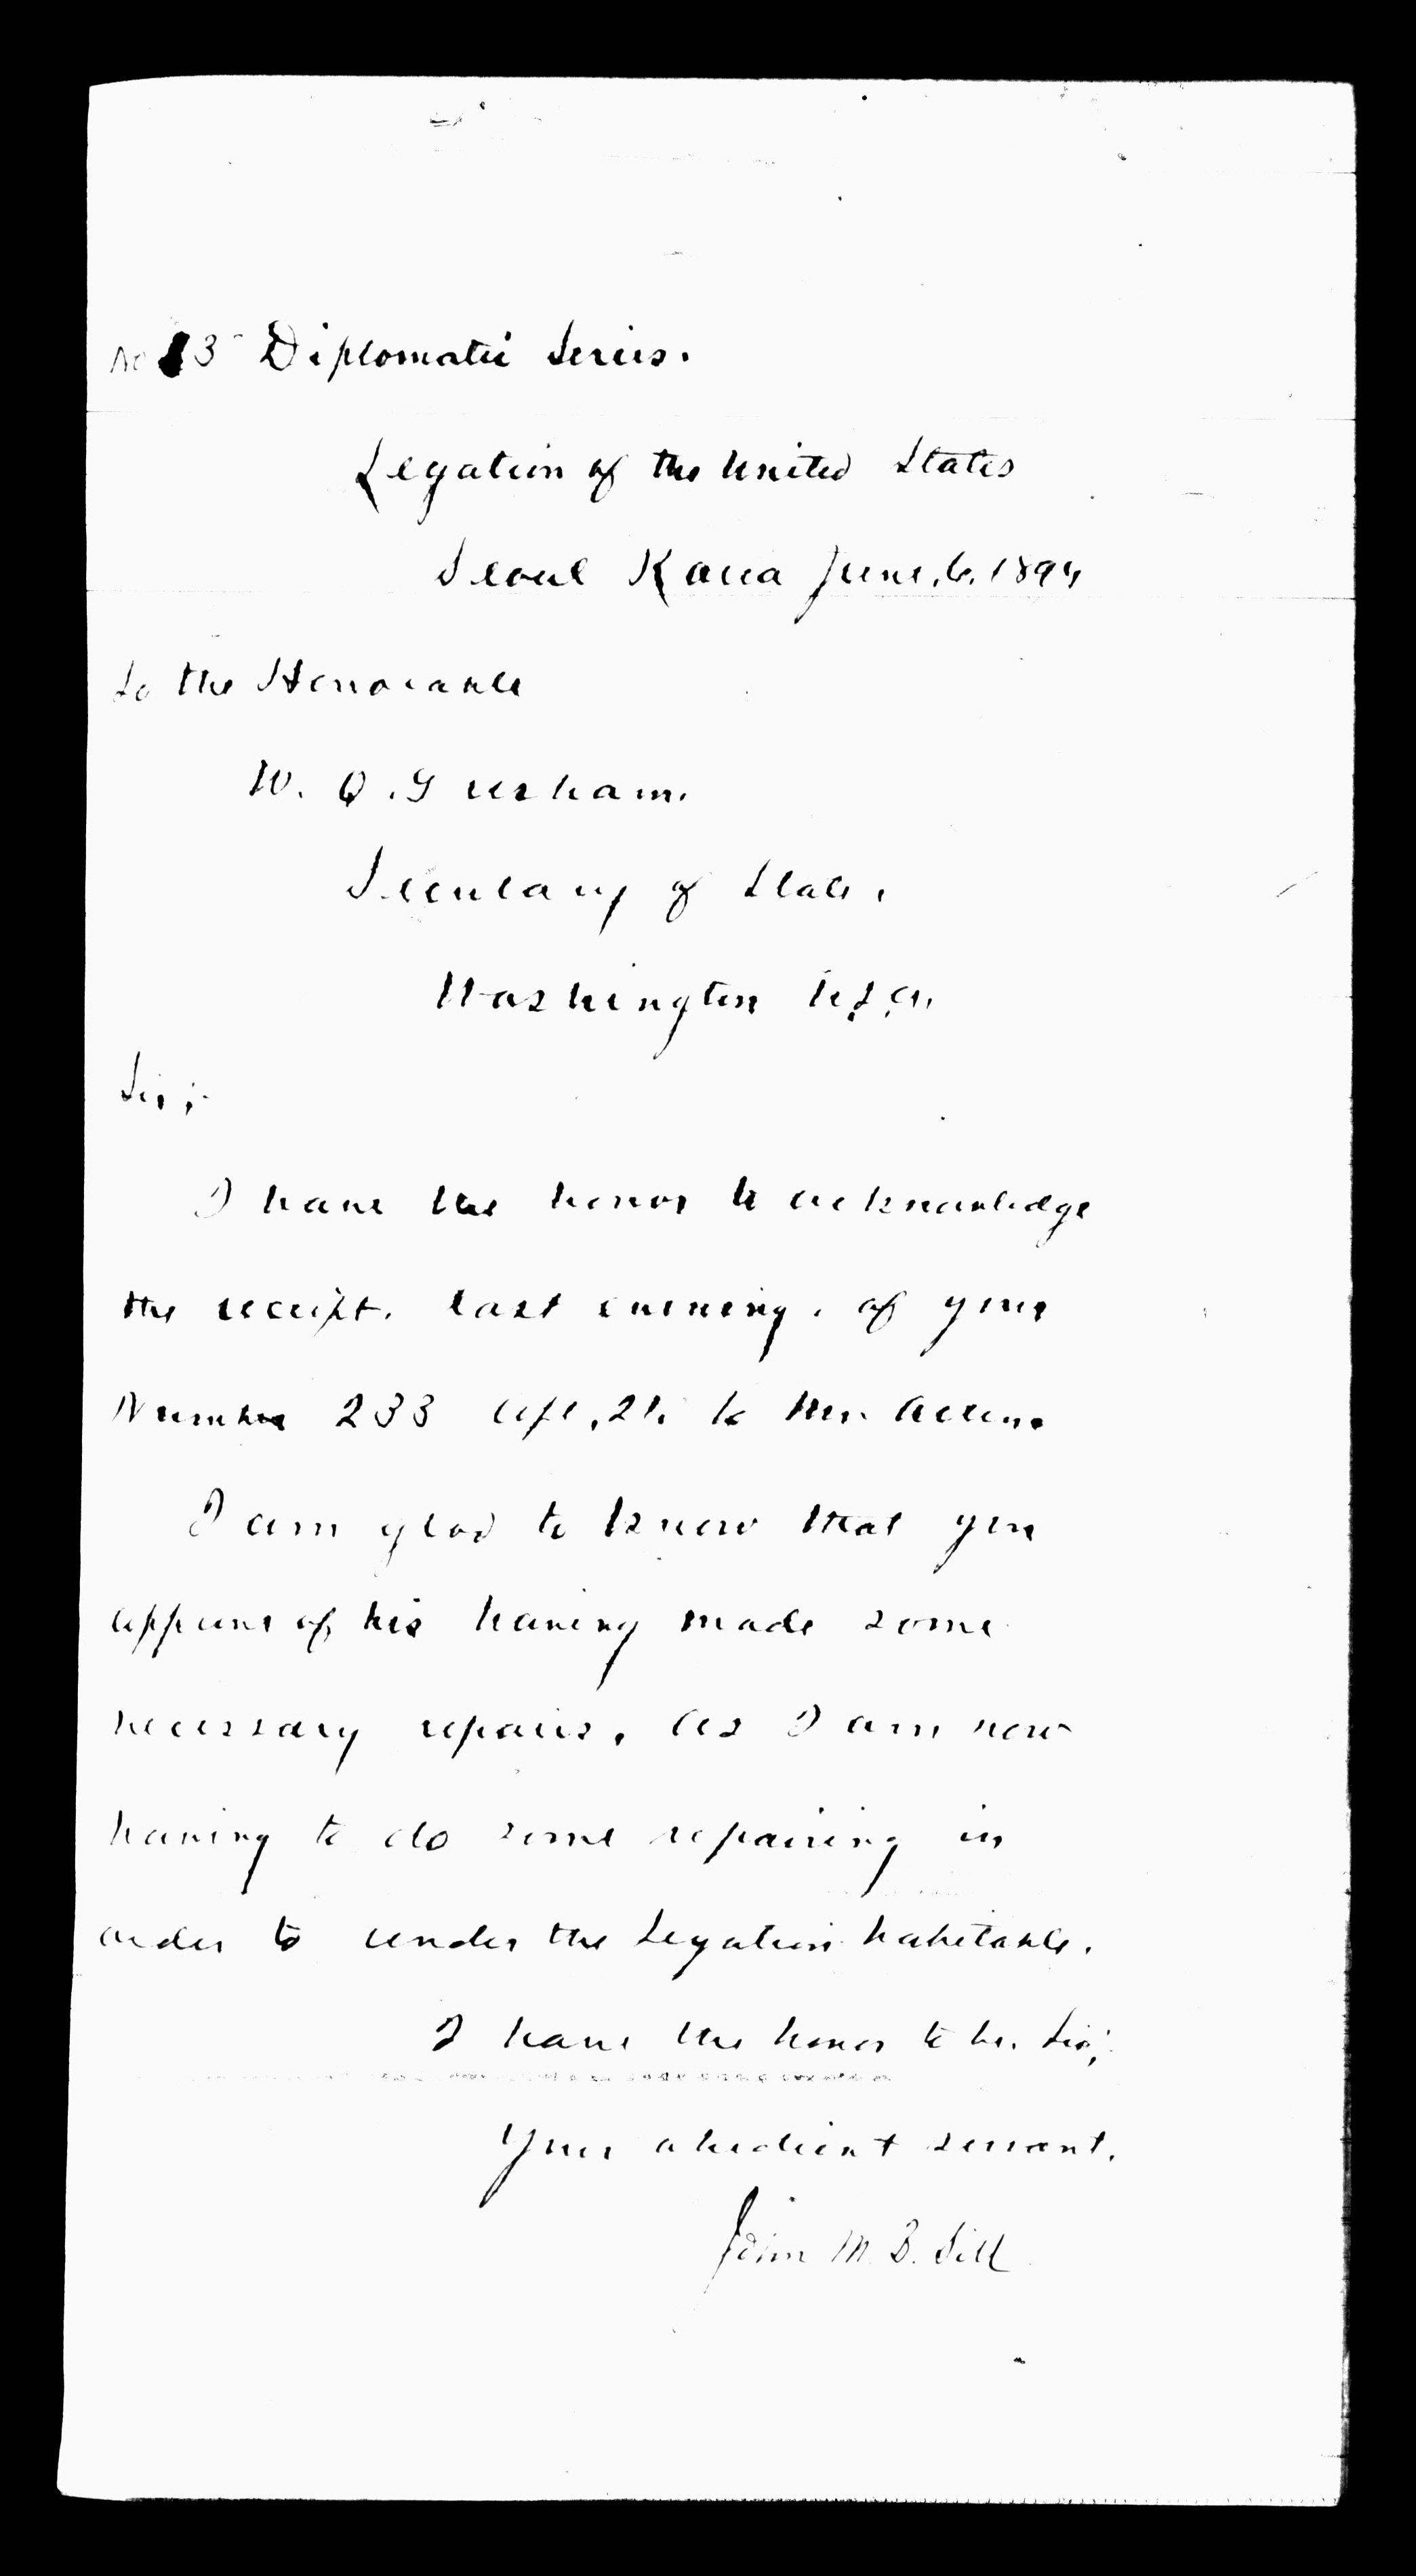 No 3 Diplomatic Series.
Legation of the United States
Seoul Korea June. 6. 1894
To the Honorable
W. Q. Gresham.
Secretary of State.
Washington U.S.A.
Sir;
I have the honor to acknowledge
the receipt. last evening. of your
Number 233 Apl. 21. to Mr. Allen.
I am glad to know that you
approve of his having made some
necessary repairs. As I am now
having to do some repairing in
order to render the Legation habitable.
I have the honor to be. Sir;
Your obedient servant.
John M. B. Sill